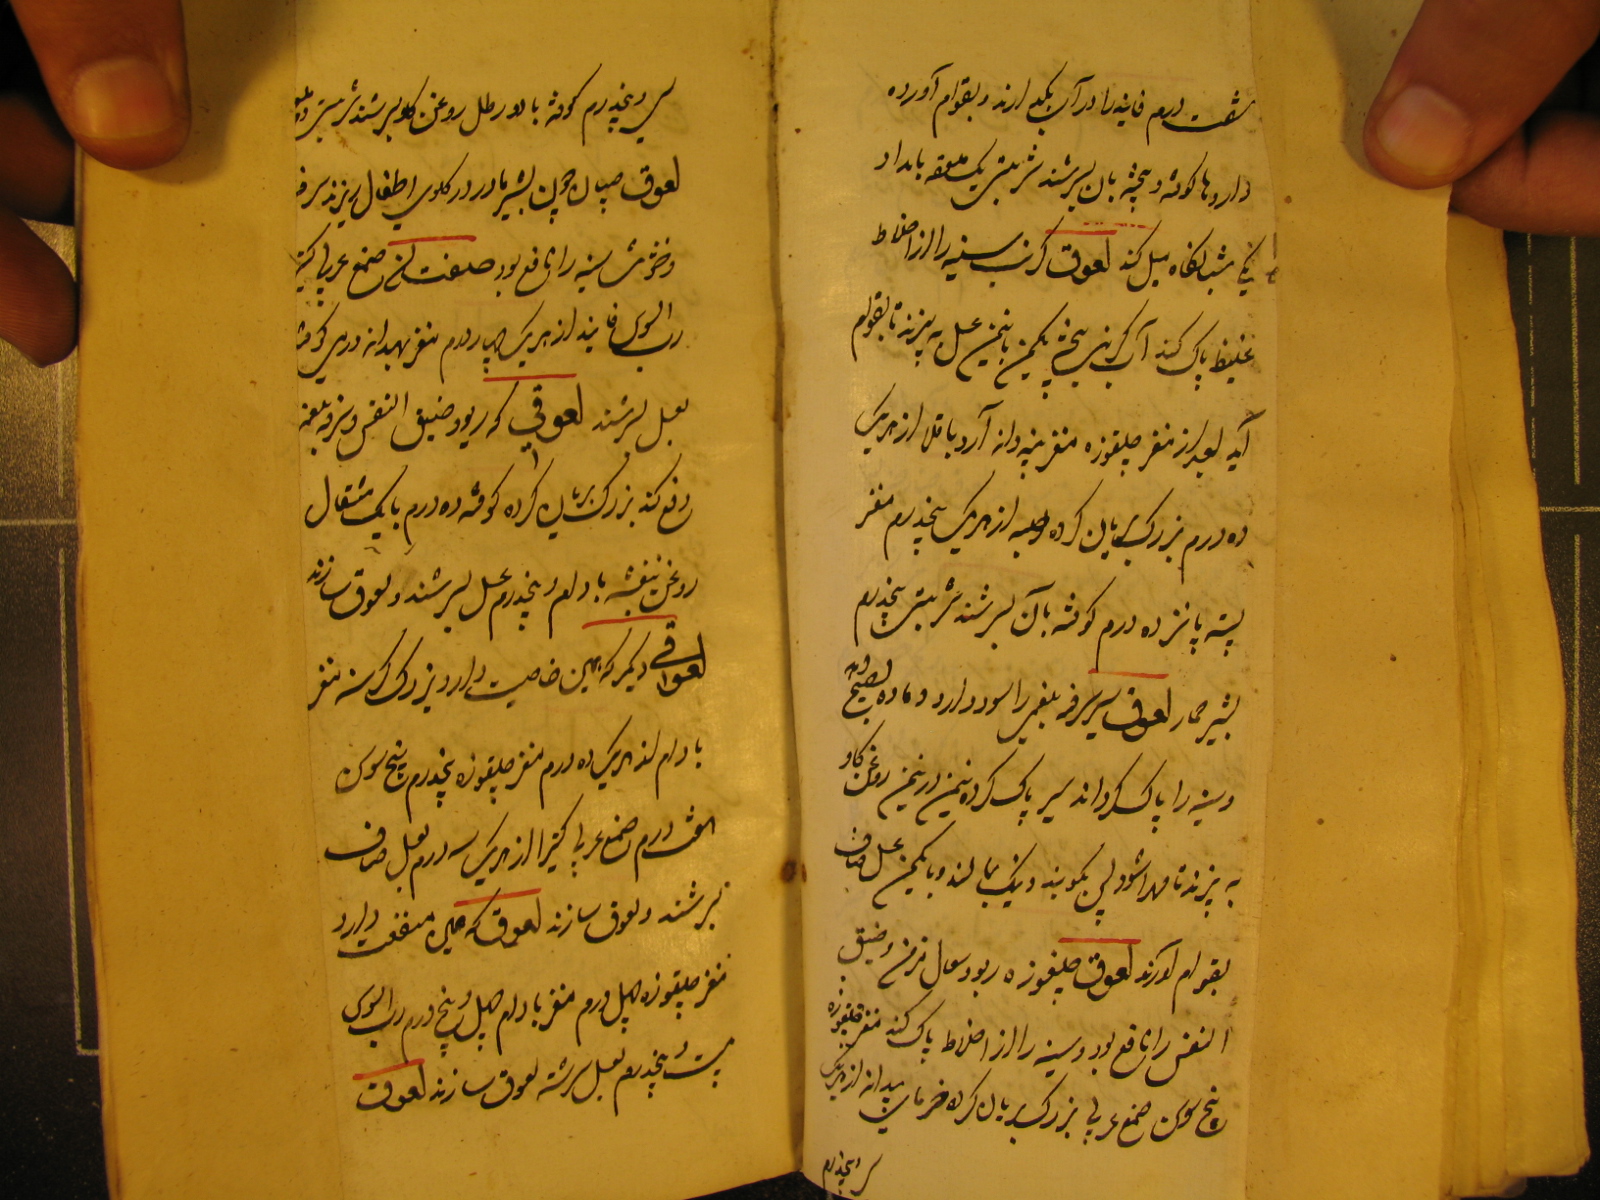 شصت درم فانید را در آب یکی ارند و بقوام آورده
داروها کوفته و بیخته بان بسرشند شربتش یک ملعقه بامداد
یکی شبانگاه میل کند لعوق کرنب سینه را از اخلاط
غلیظ پاک کند آب کرنب پخته یکمن با نیمن عسل به پزند تا بقوام
آید بعد از مغز چلغوزه مغز پنبه دانه آرد باقلا از هریک
ده درم بزرک بریان کرده حلبه از هریک پنجدرم مغز
پسته پانزده درم کوفته بآن بسرشند شربتش پنجدرم
بشیر حمار لعوق سیر سرفه بلغمی را سود دارد و ماده نضیج دهد
و سینه را پاک کرداند سیر پاک کرده نیمن در نیمن روغن کاو
به پزند تا مهرا شود پس بکوبند و نیک بمالند و با یکمن عسل صاف
بقوام آورند لعوق چلغوزه ربو و سعال مزمن و ضیق
النفس را نافع بود و سینه را از اخلاط پاک کند مغز چلغوزه
بیخ سوسن صمغ عربی بزرک بریان کرده خرما بهدانه از هریک
سی و پنجدرم
سی و پنجدرم کوفته با دو رطل روغن کاو بسرشند شربتش دو ملعقه
لعوق صبیان چون بشیر مادر در کلوی اطفال ریزند سرفه
و خشونت سینه را نافع بود صنعت ان صمغ عربی کتیرا
رب السوس فانید از هریک چهار درم مغز بهدانه درمی کوفته
بعسل بسرشند لعوقی که ربو و ضیق النفس و سرفه بلغمی
دفع کند بزرک بریان کرده کوفته ده درم با یک مثقال
روغن بنفشه بادام و پنجدرم عسل بسرشند و لعوق سازند
لعوقی دیکر که همین خاصیت دارد بزرک کرسنه مغز
بادام از هریک ده درم مغز چلغوزه پنجدرم بیخ سوسن
هفت درم صمغ عربی کتیرا از هریک سه درم بعسل صاف
بسرشند و لعوق سازند لعوق که همین منفعت دارد
مغز چلغوزه چهل درم مغز بادام چهل و پنج درم رب السوس
بیست و پنجدرم بعسل سرشته لعوق سازند لعوق